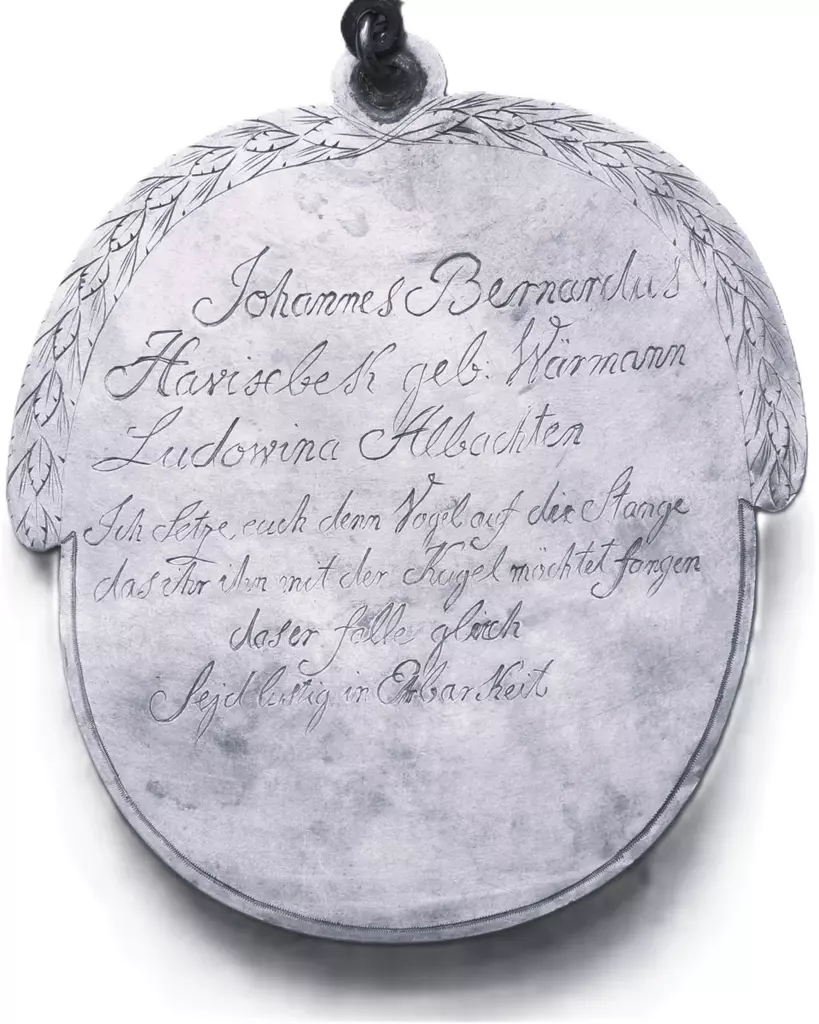 Johannes Bernardus
Havixbek geb: Wärmann
Ludowina Albachten
Ich Setze euch denn Vogel auf die Stange
das ihr ihn mit der Kugel möchtet fangen
das er falle gleich
Sejd lustig in Erbarkeit